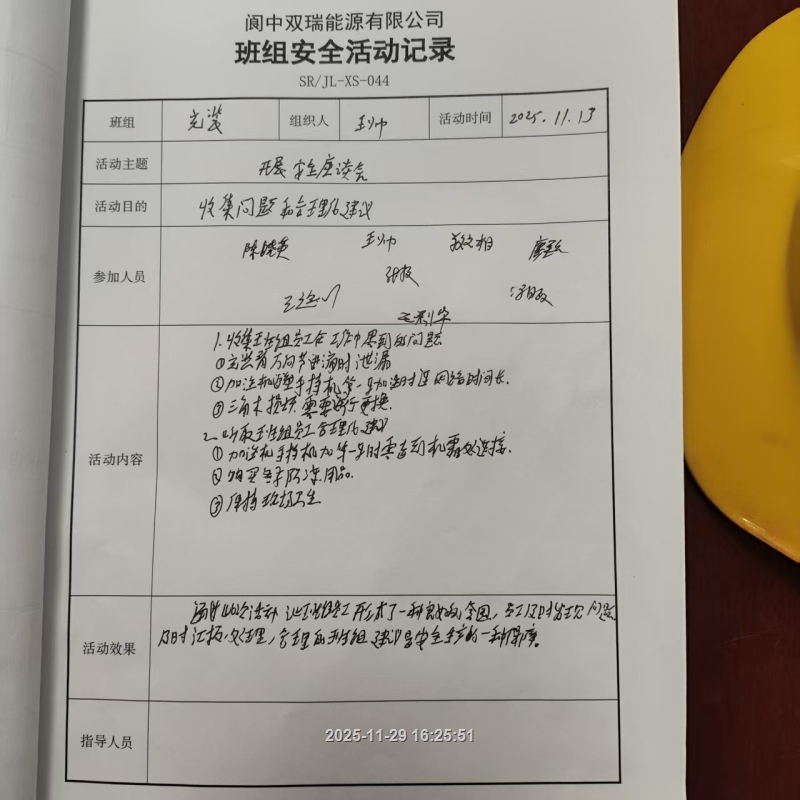 阆中双瑞能源有限公司
班组安全活动记录
SR/JL-XS-044
班组 充装 组织人 王帅 活动时间 2025.11.13
活动主题 开展安全座谈会
活动目的 收集问题和合理化建议
王帅
参加人员
1.收集班组员工在工作中遇到的问题
①充装前万向节进液时泄漏
②加注机手持机第一車加注时找网络时间长.
③三角木损坏需要进行更换.
2.听取班组员工合理化建议
①加注机手持机加第一車时靠近到机器处连接.
②购买冬季防冻用品.
③保持现场卫生
活动内容
通过此次活动 让班组员工形成了一种良好的氛围,员工及时发现问题
及时汇报处理,合理的班组建议是安全生产的一种保障。
活动效果
指导人员
2025-11-29 16:25:51